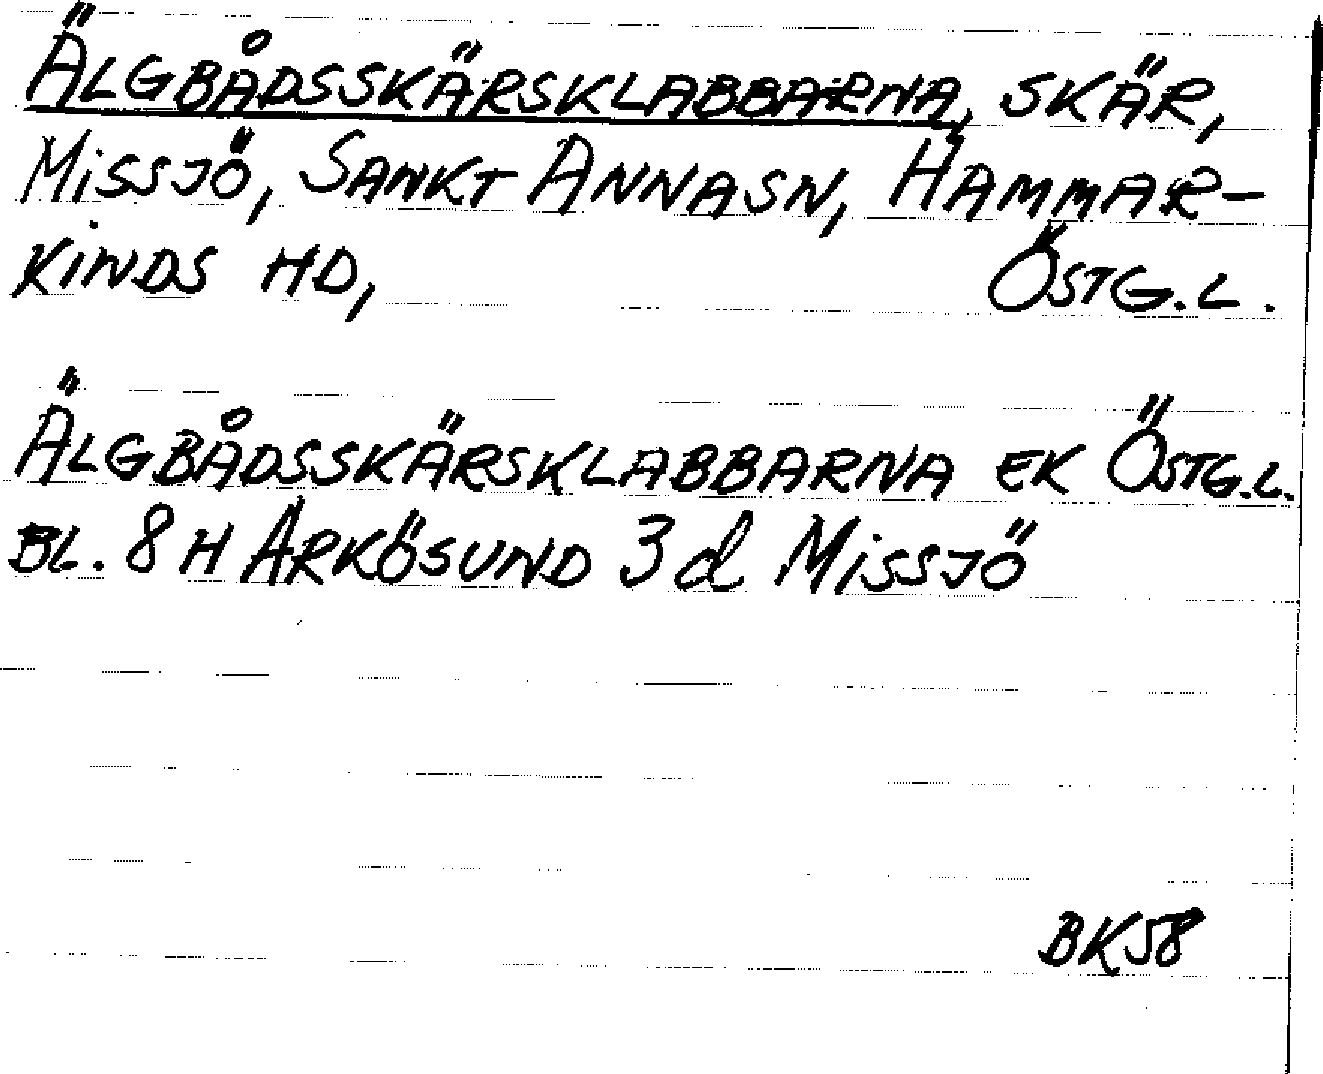 ÄLGBÅDSSKÄRSKLABBARNA, SKÄR,
MISSJÖ, SANKT ANNASN, HAMMAR-
KINDS HD, ÖSTG.L.
ÄLGBÅDSSKÄRSKLABBARNA EK ÖSTG.L.
BL. 8 H ARKÖSUND 3 d MISSJÖ
BK58